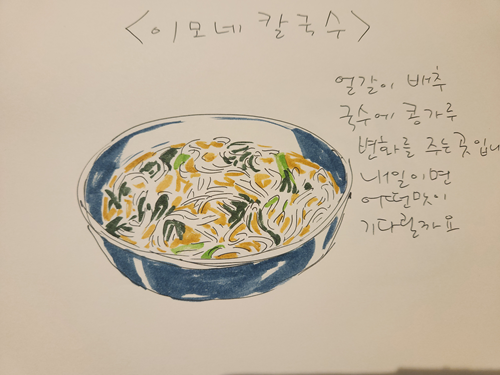 <이모네 칼국수>
얼갈이 배추
국수에 콩가루
변화를 주는 곳입니
내일이면
어떤맛이
기다릴까요